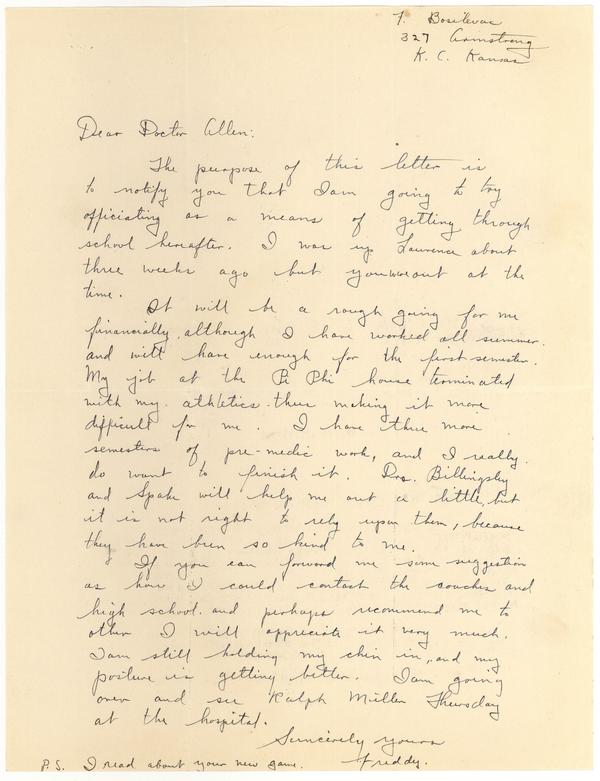 F. Bosilevac
327 Armstrong
K. C. Kansas
Dear Doctor Allen:
The purpose of this letter is
to notify you that I am going to try
officiating as a means of getting through
school hereafter. I was up Lawrence about
three weeks ago but you were out at the
time.
It will be a rough going for me
financially, although I have worked all summer.
and will have enough for the first semester.
My job at the Pi Phi house terminated
with my athletics - thus making it more
difficult for me. I have three more
semesters of pre-medic work, and I really
do want to finish it. Drs. Billingsley
and Spake will help me out a little, but
it is not right to rely upon them, because
they have been so kind to me.
If you can forward me some suggestion
as how I could contact the coaches and
high school. and perhaps recommend me to
other I will appreciate it very much.
I am still holding my chin in, and my
posture is getting better. I am going
over and see Ralph Miller Thursday
at the hospital.
Sincerely yours
Freddy.
P.S. I read about your new game.